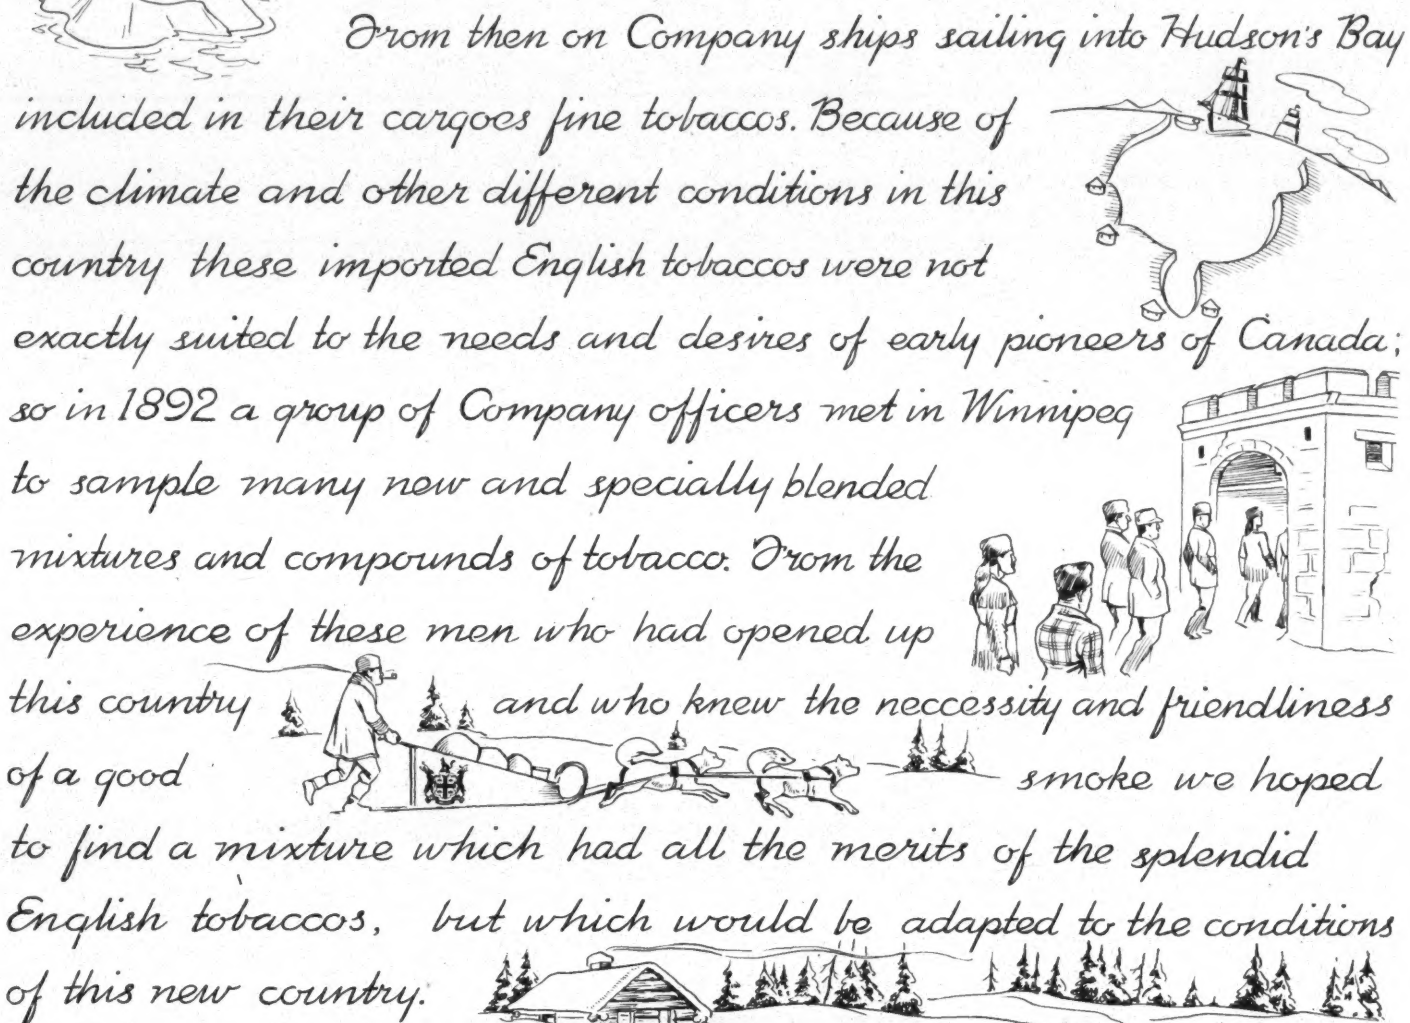 From then on Company ships sailing into Hudson's Bay
included in their cargoes fine tobaccos. Because of
the climate and other different conditions in this
country these imported English tobaccos were not
exactly suited to the needs and desires of early pioneers of Canada;
so in 1892 a group of Company officers met in Winnipeg
to sample many new and specially blended
mixtures and compounds of tobacco. From the
experience of these men who had opened up
this country and who knew the neccessity and friendliness
of a good smoke we hoped
to find a mixture which had all the merits of the splendid
English tobaccos, but which would be adapted to the conditions
of this new country.